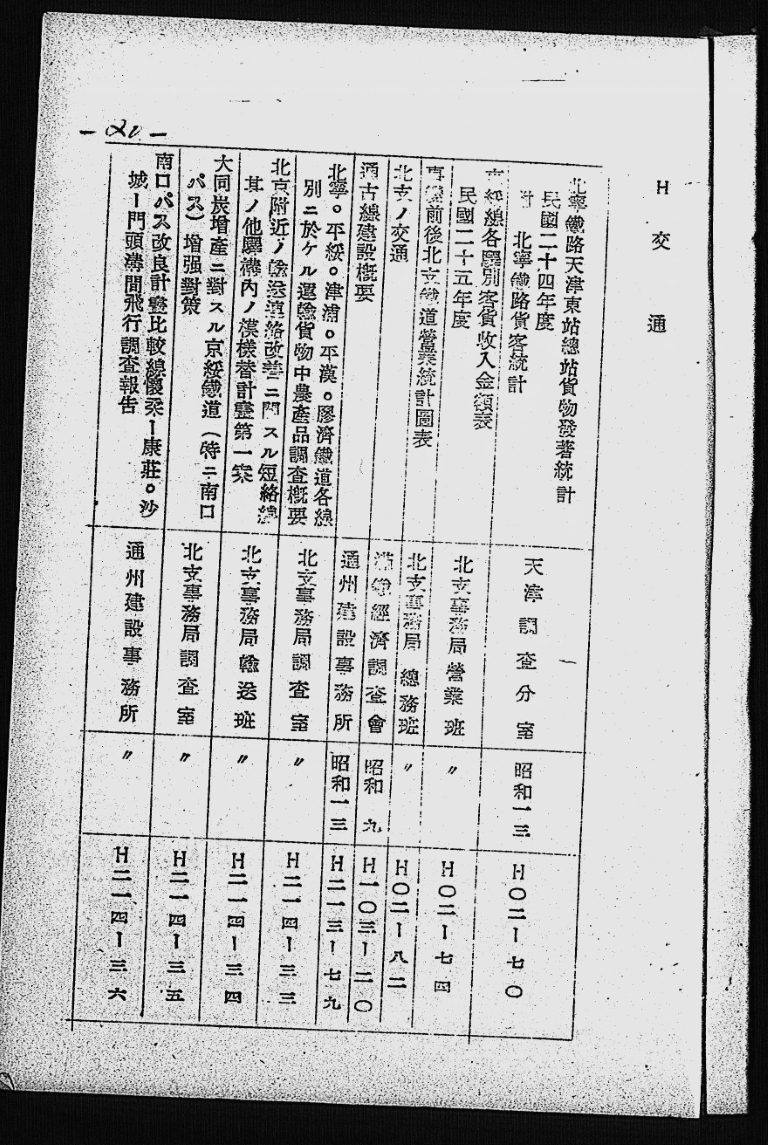 H 交通
北寧鐵路天津東站總站貨物發著統計
民國二十四年度
北寧鐵路貨客統計
天津調查分室
昭和一三
H〇二ー七〇
京綏線各驛別客貨收入金額表
民國二十五年度
北支事務局營業班
〃
H〇二ー七四
事變前後北支鐵道營業統計圖表
北支事務局 總務班
〃
H〇二ー八二
北支ノ交通
滿鐵經濟調查會
昭和 九
H一〇三ー二〇
通古線建設概要
通州建設事務所
昭和一三
H二一三ー七九
北寧。平綏。津浦。平漢。膠濟鐵道各線
別ニ於ケル運輸貨物中農產品調查概要
北支事務局調查室
〃
H二一四ー三三
北京附近ノ輸送連絡改善ニ關スル短絡線
其ノ他驛構內ノ模樣替計畫第一案
北支事務局輸送班
〃
H二一四ー三四
大同炭增產ニ對スル京綏鐵道（特ニ南口
パス）增强對策
北支事務局調查室
〃
H二一四ー三五
南口パス改良計畫比較線懷柔ー康莊。沙
城ー門頭溝間飛行調查報告
通州建設事務所
〃
H二一四ー三六